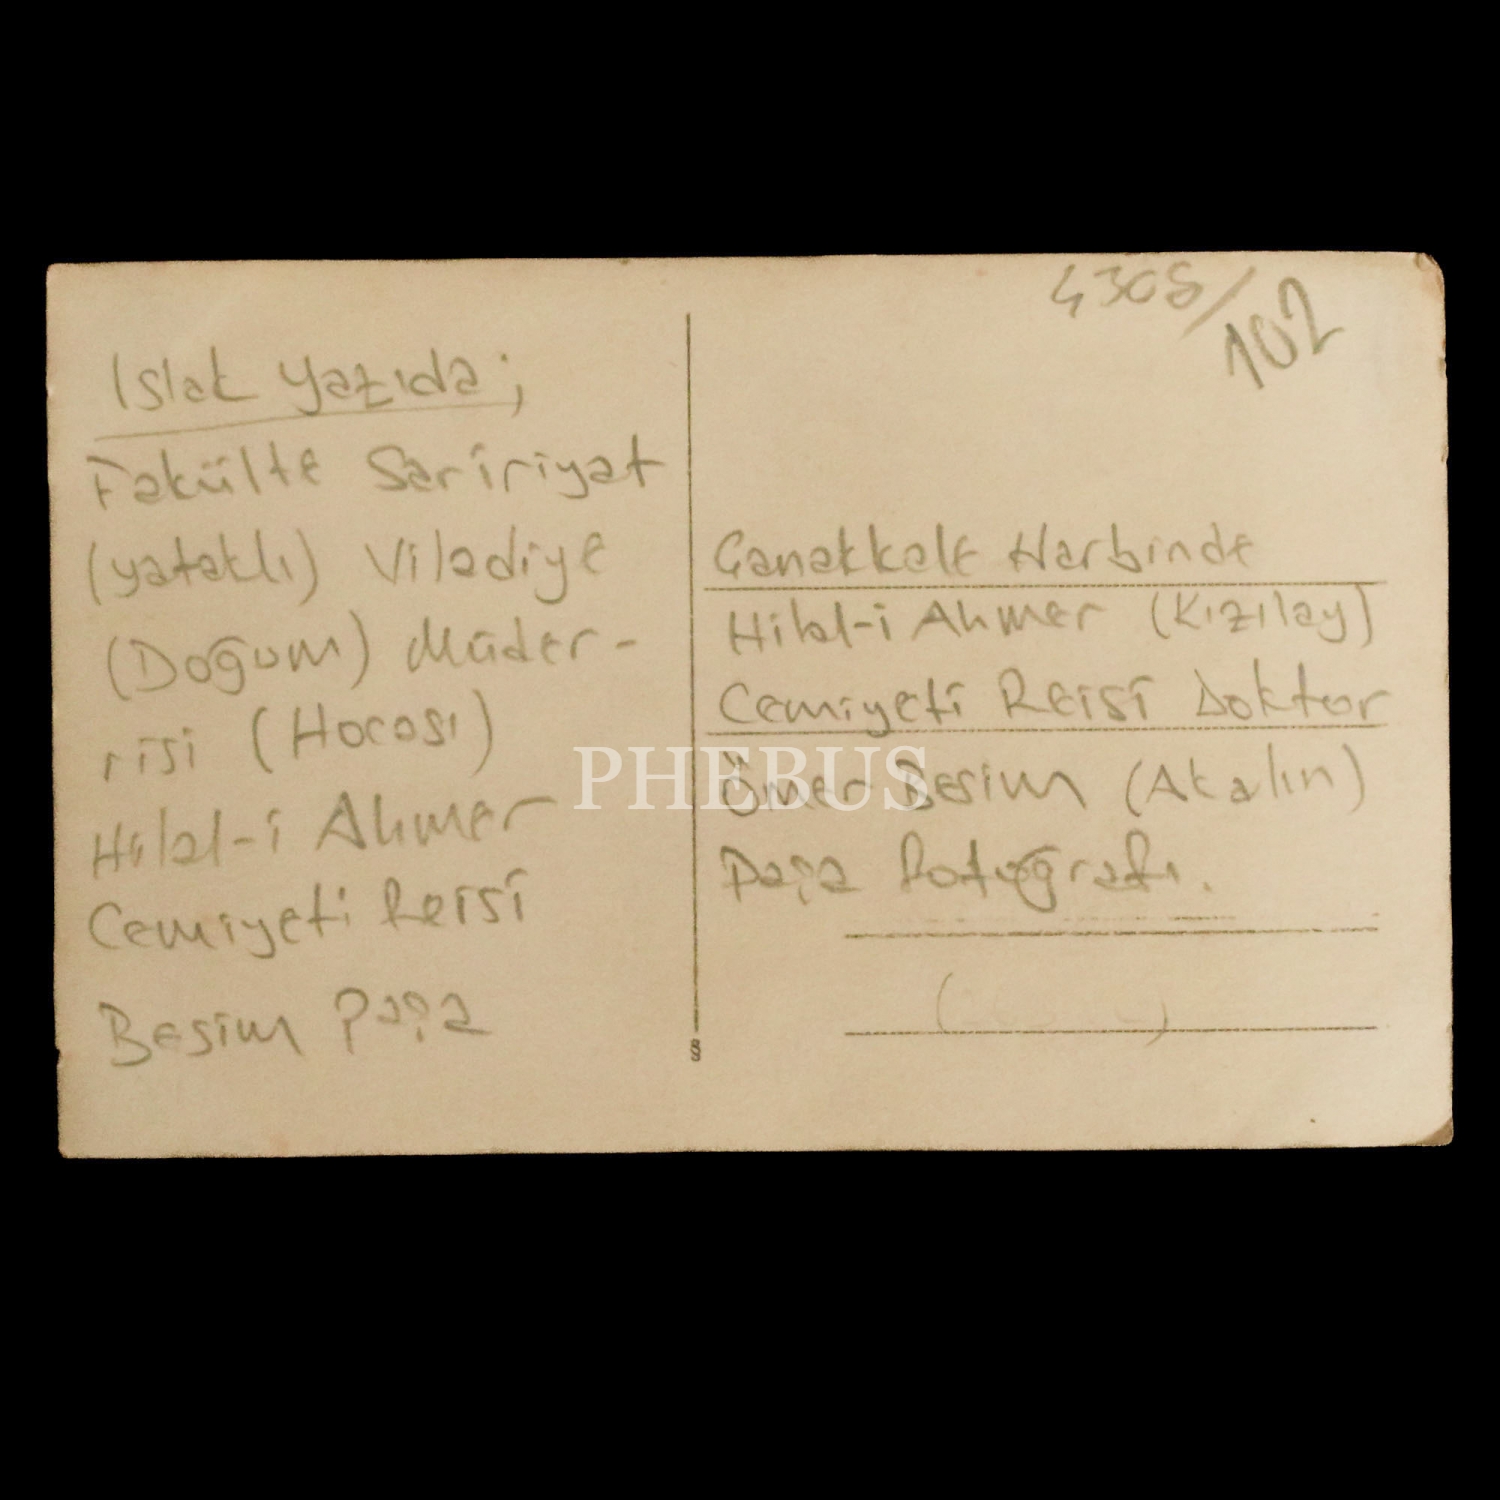 4305/
102
Islak yazıda;
Fakülte Saririyat
(yataklı) Viladiye
(Doğum) Müder-
risi (Hocası)
Hilal-i Ahmer
Cemiyeti Reisi
Besim Paşa
Çanakkale Harbinde
Hilal-i Ahmer (Kızılay)
Cemiyeti Reisi Doktor
Ömer Besim (Akalın)
Paşa Fotoğrafı.
PHEBUS